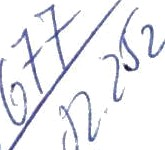 677
12.252